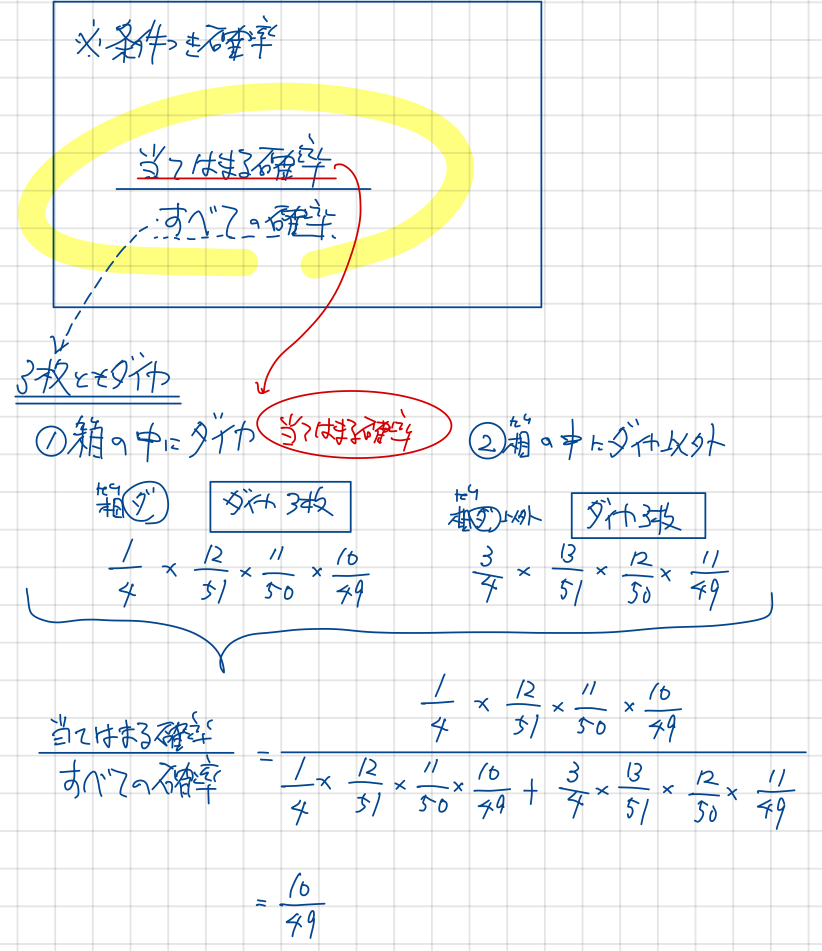 ※条件つき確率
当てはまる確率
すべての確率
3枚ともダイヤ
①箱の中にダイヤ
当てはまる確率
②箱の中にダイヤ以外
箱ダ
ダイヤ3枚
ダイヤ3枚
1/4 × 12/51 × 11/50 × 10/49
3/4 × 13/51 × 12/50 × 11/49
当てはまる確率/すべての確率 = (1/4 × 12/51 × 11/50 × 10/49)/(1/4 × 12/51 × 11/50 × 10/49 + 3/4 × 13/51 × 12/50 × 11/49)
= 10/49